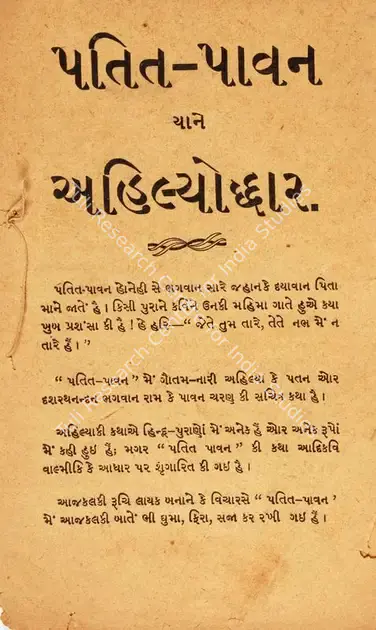 પતિત-પાવન
યાને
અહિલ્યોદ્ધાર.
પતિત-પાવન હોનેહી સે ભગવાન સારે જહાનકે દયાવાન પિતા
માને જાતે હૈં । કિસી પુરાને કવિને ઉનકી મહિમા ગાતે હુએ કયા
ખુબ પ્રશંસા કી હૈ ! હે હરિ—“ જેતે તુમ તારે, તેતે નભ મેં ન
તારે હૈં । ”
“ પતિત-પાવન ” મેં ગૌતમ-નારી અહિલ્યા કે પતન ઓર
દશરથનન્દન ભગવાન રામ કે પાવન ચરણ કી સચિત્ર કથા હૈ ।
અહિલ્યાકી કથાએ હિન્દૂ-પુરાણોં મેં અનેક હૈં ઓર અનેક રૂપોં
મેં કહી હુઇ હૈં; મગર “ પતિત પાવન ” કી કથા આદિકવિ
વાલ્મીકિ કે આધાર પર શૃંગારિત કી ગઇ હૈ ।
આજકલકી રૂચિ લાયક બનાને કે વિચારસે “ પતિત-પાવન ’
મેં આજકલકી બાતેં ભી ઘુમા, ફિરા, સજા કર રખી ગઇ હૈં ।
Research Centre for India Studies